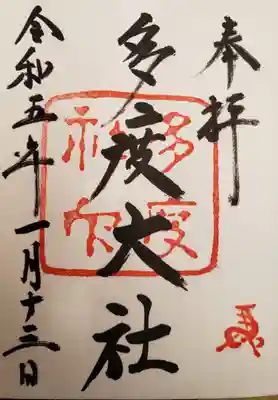 奉拝
多度大社
多度
神社
令和五年一月十三日